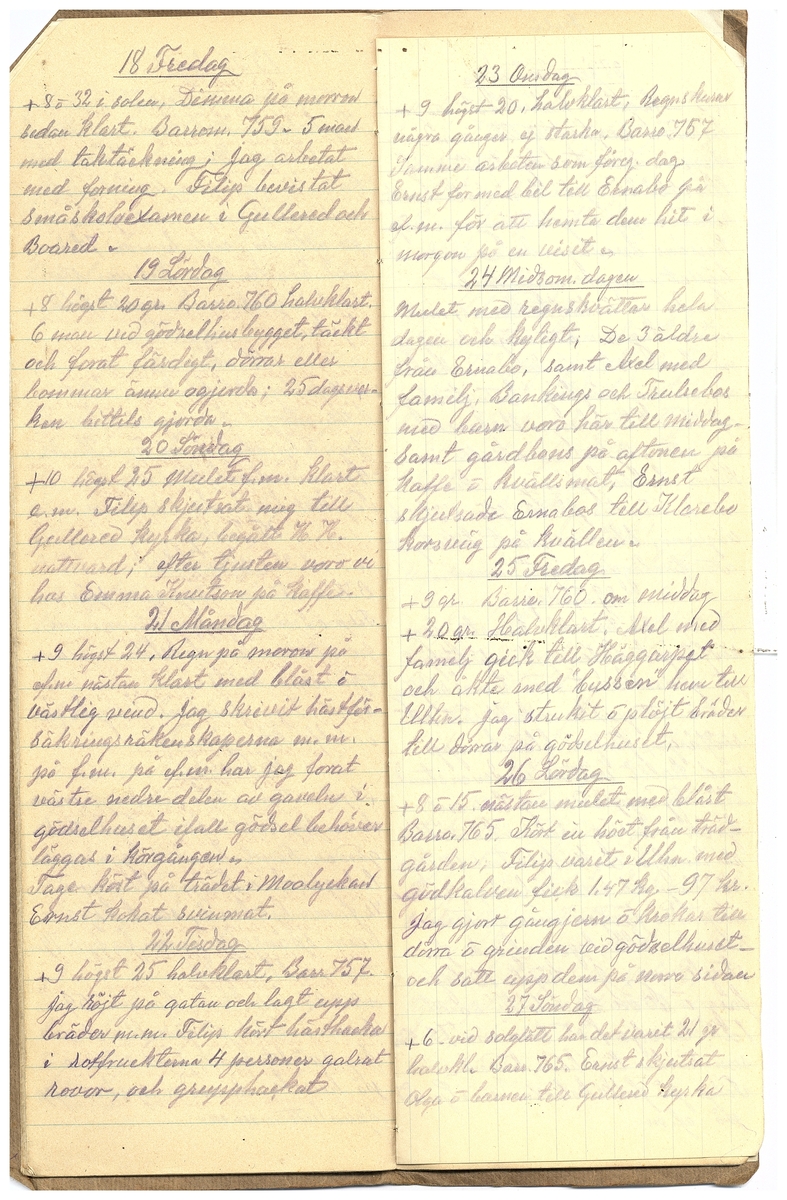 18 Fredag
+8 o 32 i solen, Dimma på morron
sedan klart. Barrom. 759 - 5 man
med taktäckning; jag arbetat
med foring. Filip bevistat
småskolexamen i Gullered och
Boared.
19 Lördag
+8 högst 20 gr. Barro. 760 halvklart.
6 man vid gödselhusbygget, täckt
och forat färdigt, dörrar eller
bommar ännu ogjorda; 25 dagsver-
ken hittils gjorda.
20 Söndag
+10 högst 25 Mulet f.m. klart
e.m. Filip skjutsat mig till
Gullered kyrka, begått H. H.
nattvard; efter tjänsten voro vi
hos Emma Knutson på kaffe.
21 Måndag
+9 högst 24, Regn på morron på
e.m. nästan klart med blåst o
västlig vind. Jag skrivit hästför-
säkringsräkenskaperna m.m.
på f.m. på e.m. har jag forat
västre nedre delen av gaveln i
gödselhuset ifall gödsel behöver
läggas i körgången.
Tage kört på trädet i Moalyckan
Ernst kokat svinmat.
22 Tisdag
+9 högst 25 halvklart, Barr 757.
jag röjt på gatan och lagt upp
bräder m.m. Filip kört hästhacka
i rotfruckterna 4 personer galrat
rovor, och grepphackat
23 Onsdag
+9 högst 20, halvklart, Regnskurar
några gånger ej starka, Barro. 757
Samma arbeten som föreg. dag
Ernst for med bil till Ernabo på
e.m. för att hemta dem hit i
morgon på en visit.
24 Midsom.dagen
Mulet med regnskvättar hela
dagen och kyligt, De 3 äldre
från Ernabo, samt Axel med
familj, Bankings och Trulsebos
med barn voro här till middag
samt gårdbons på aftonen på
kaffe o kvällsmat, Ernst
skjutsade Ernabos till Klarebo
korsväg på kvällen.
25 Fredag
+9 gr. Barro. 760. om middag
+20 gr. Halvklart. Axel med
familj gick till Häggarpet
och åkte med bussen hem till
Ulhn. jag strukit o plöjt bräder
till dörrar på gödselhuset,
26 Lördag
+8 o 15. nästan mulet med blåst
Barro. 765. Kört in höet från träd-
gården, Filip varit i Ulhn. med
gödkalven fick 1.47 kg. - 97 kr.
jag gjort gångjern o krokar till
dörra o grinden vid gödselhuset
och satt upp dem på norra sidan
27 Söndag
+6 - vid solglatt har det varit 21 gr
halvkl. Barr. 765. Ernst skjutsat
Olga o barnen till Gullered kyrka